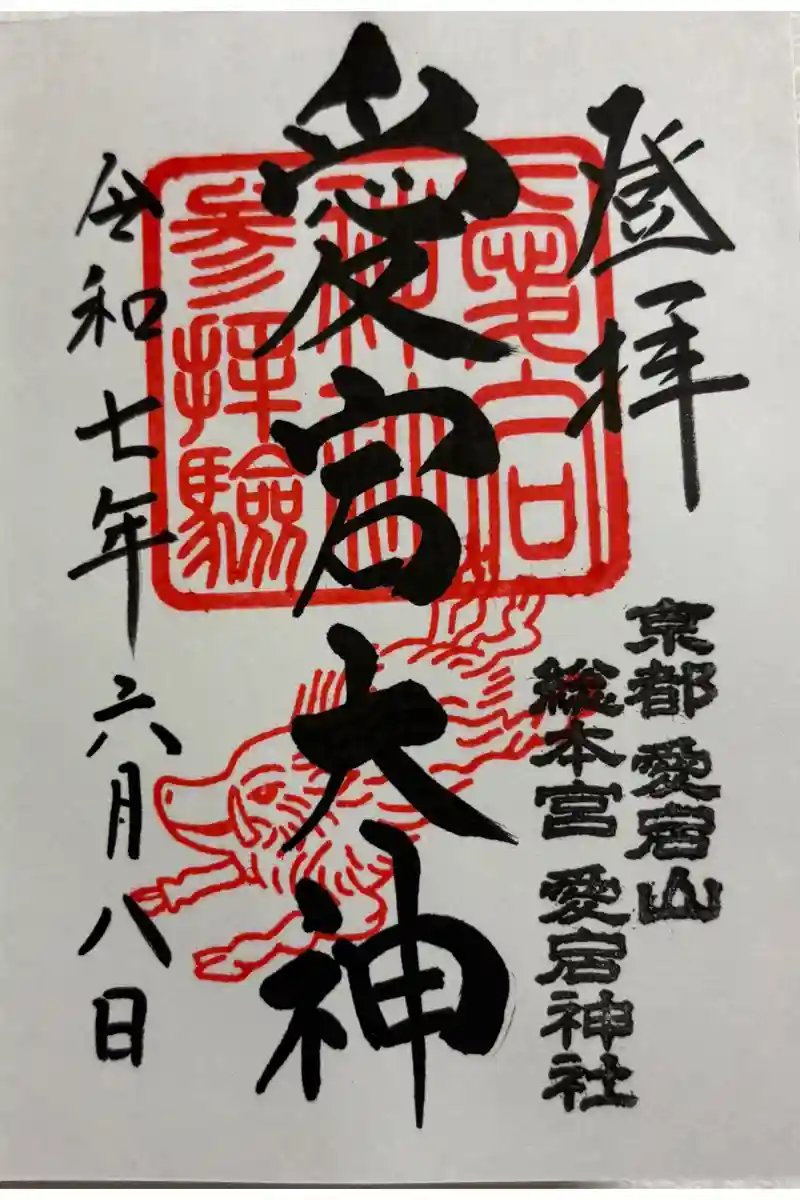 登拝
京都 愛宕山
総本宮 愛宕神社
愛宕大神
令和七年六月八日
愛宕
神社
参拝験